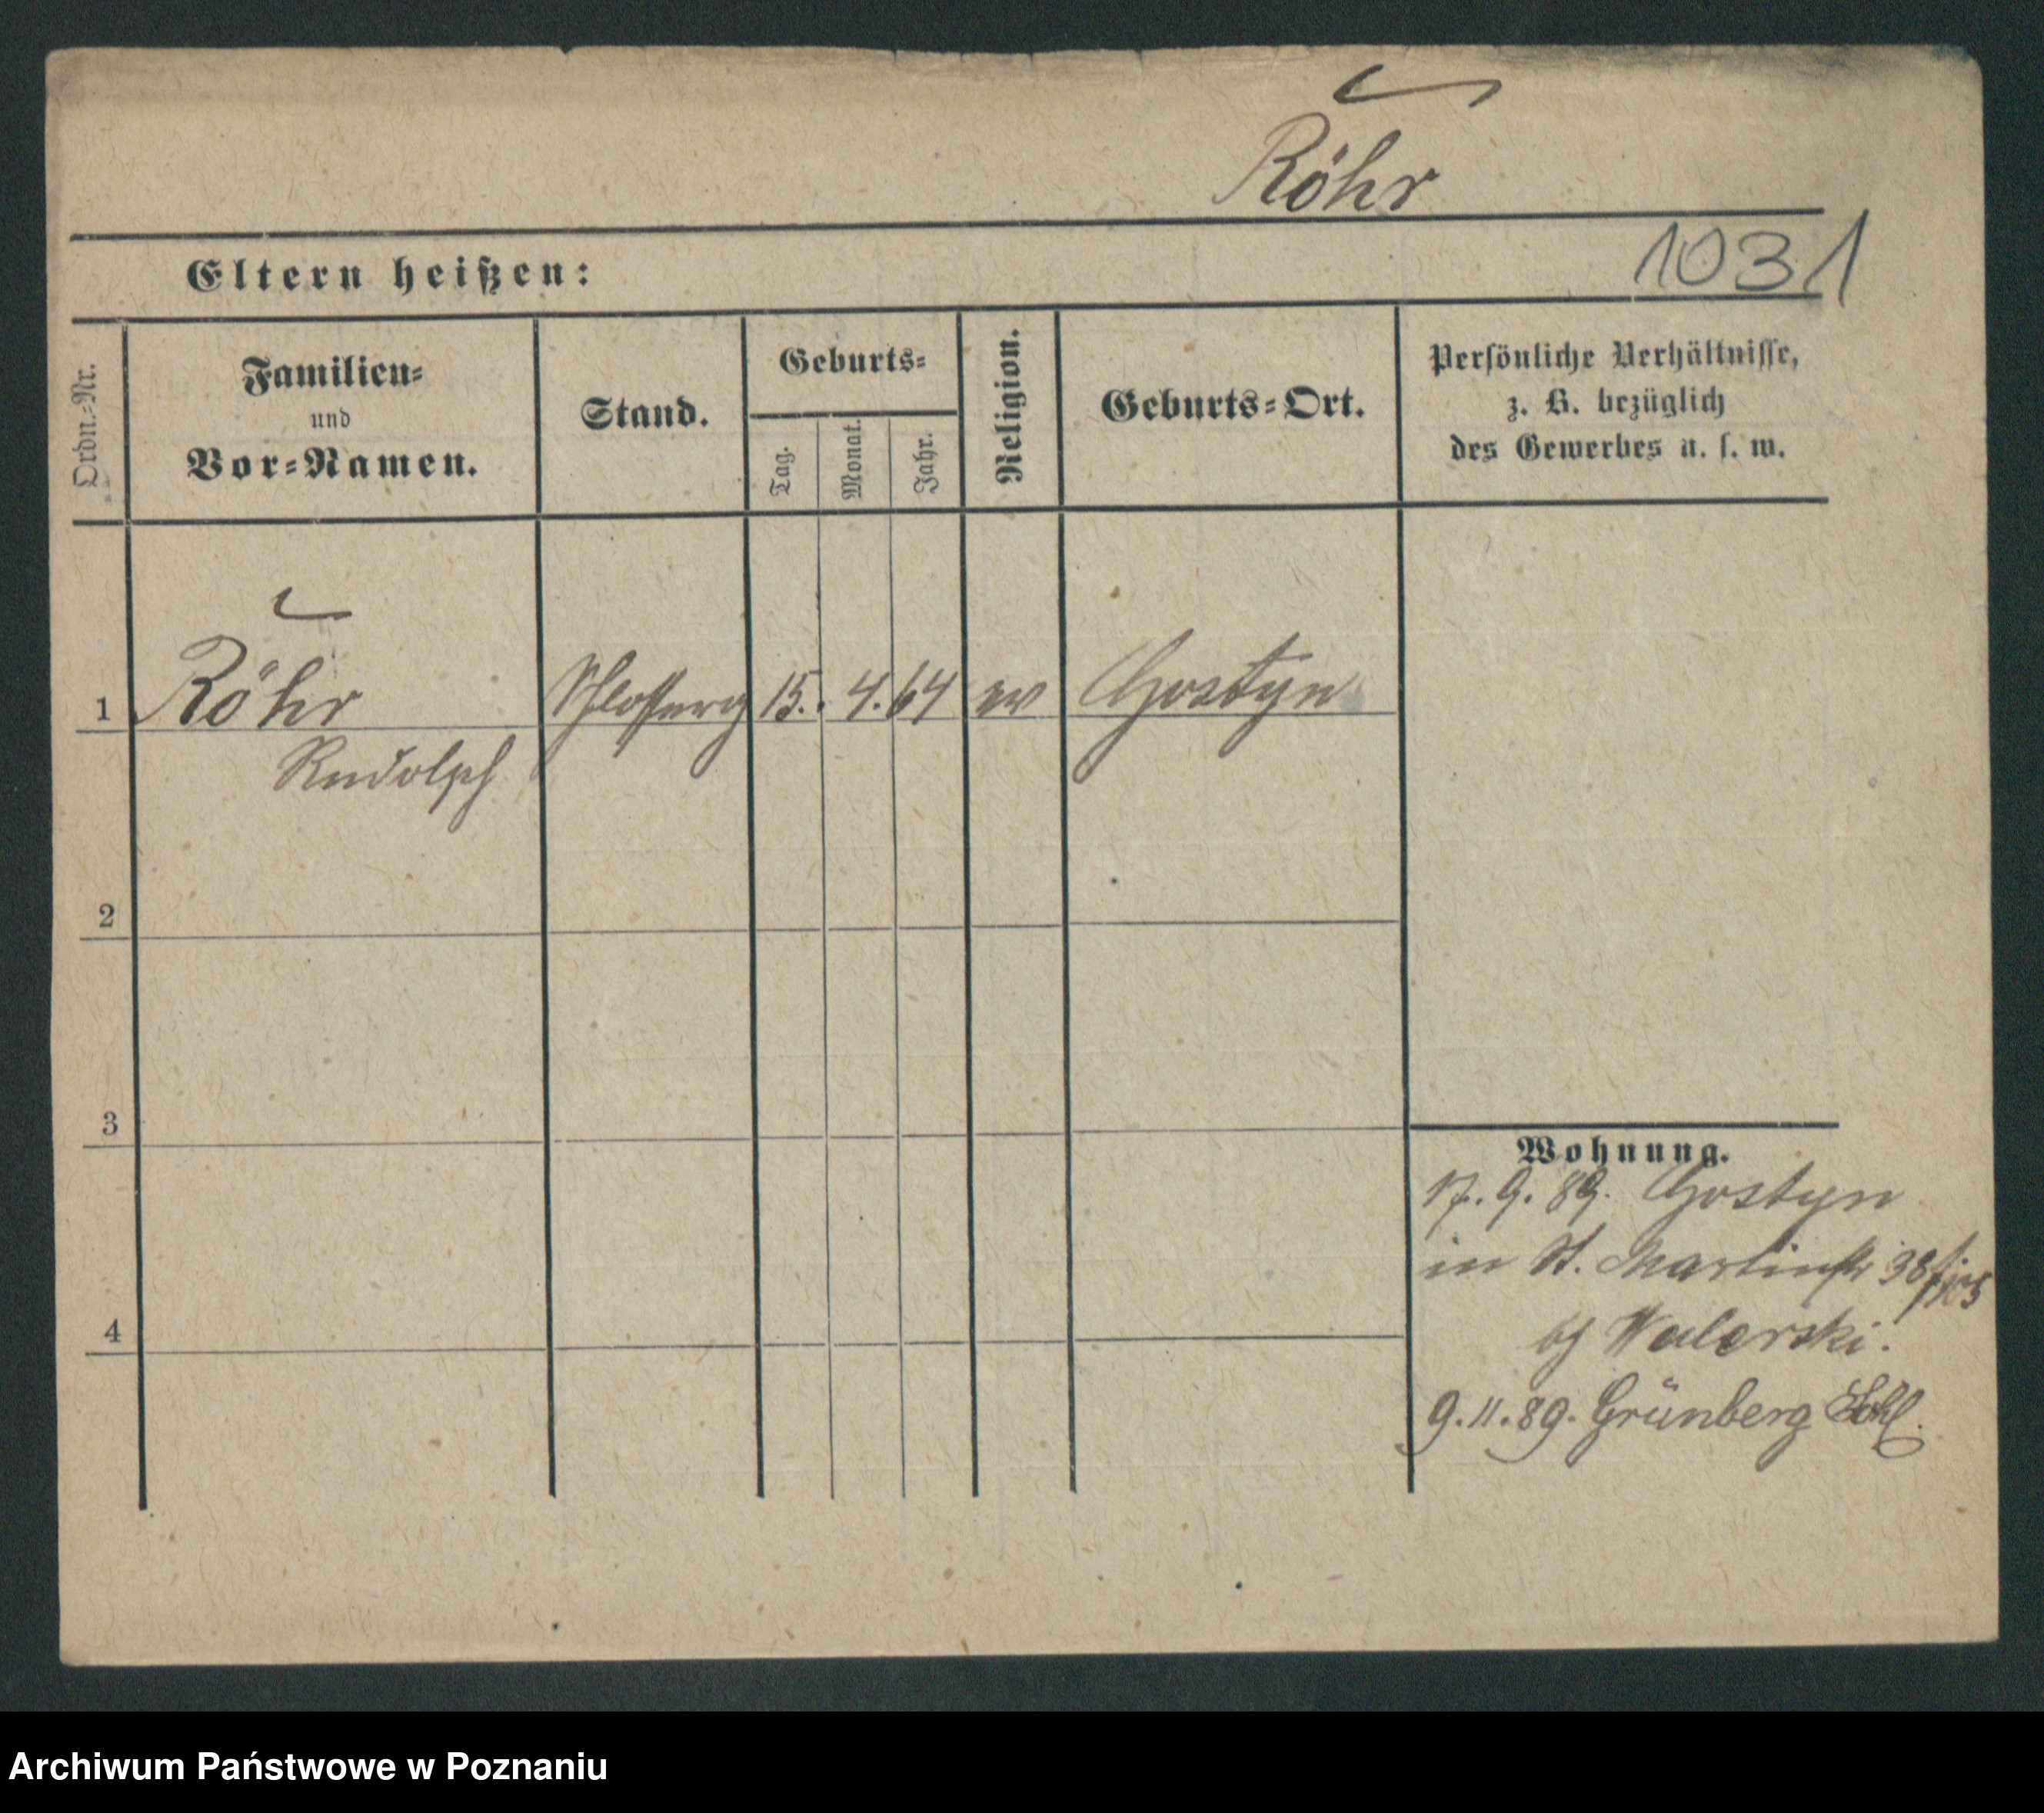 Röhr
1031
Eltern heißen:
Ordn.-Nr.
Familien-
und
Vor-Namen.
Stand.
Geburts-
Tag.
Monat.
Jahr.
Religion.
Geburts-Ort.
Persönliche Verhältnisse,
z. B. bezüglich
des Gewerbes u. s. w.
1 Röhr 15. 4. 64 ev Gostyn
Rudolph
2
3
4
Wohnung.
17. 9. 89. Gostyn
in St. Martinstr 38
bei
9. 11. 89. Grünberg Schl.
Archiwum Państwowe w Poznaniu